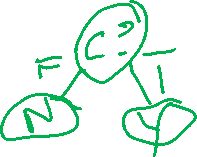 C?
F T
N Y